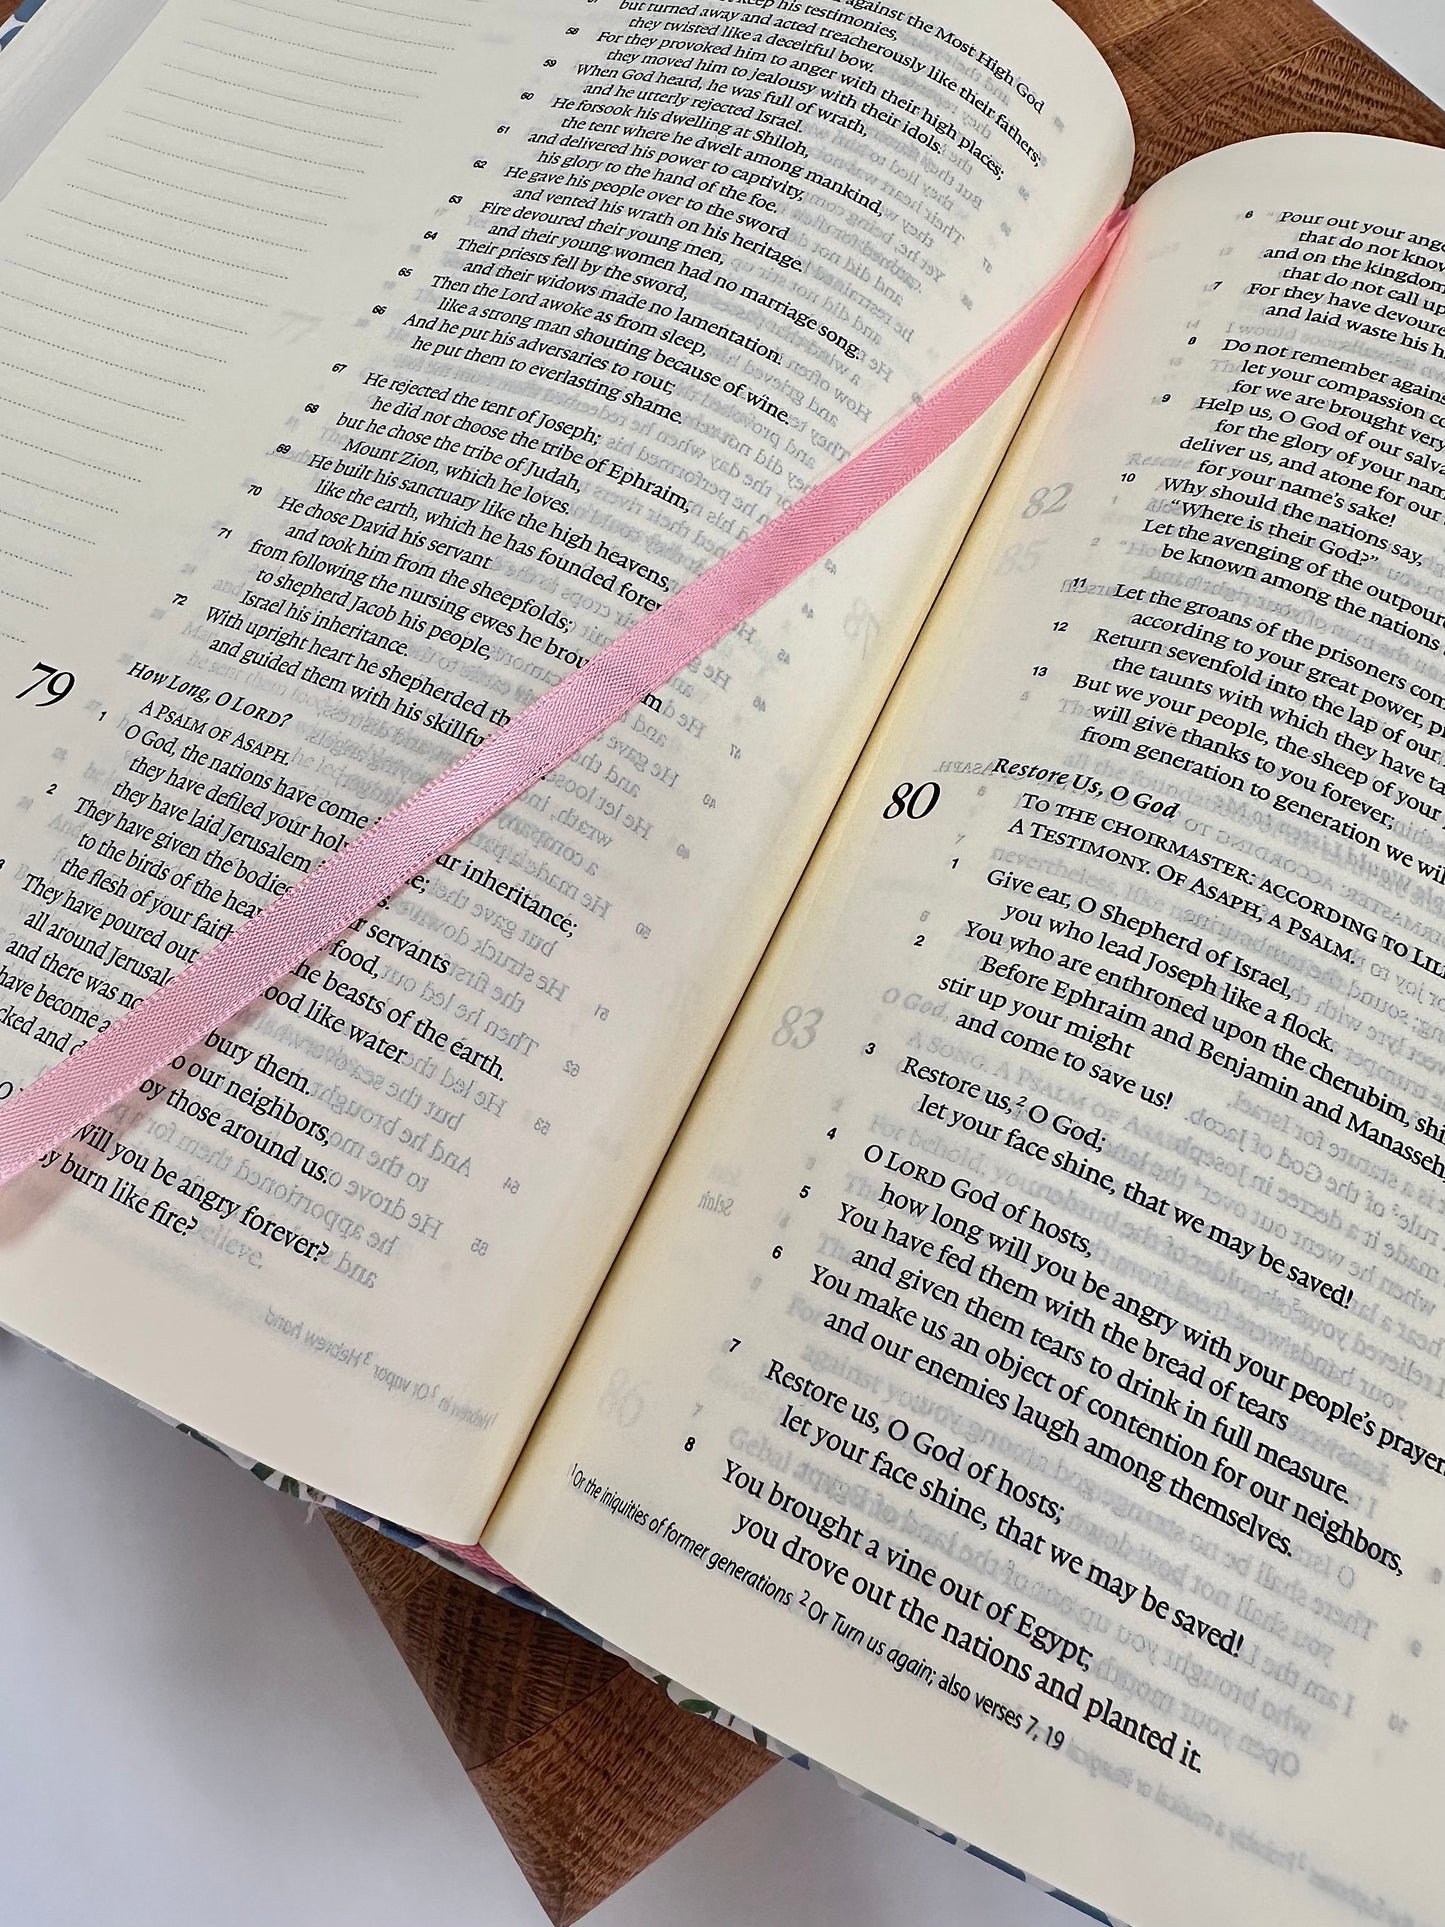 against the Most High God
keep his testimonies,
but turned away and acted treacherously like their fathers;
they twisted like a deceitful bow.
58 For they provoked him to anger with their high places;
they moved him to jealousy with their idols.
59 When God heard, he was full of wrath,
and he utterly rejected Israel.
60 He forsook his dwelling at Shiloh,
the tent where he dwelt among mankind,
61 and delivered his power to captivity,
his glory to the hand of the foe.
62 He gave his people over to the sword
and vented his wrath on his heritage.
63 Fire devoured their young men,
and their young women had no marriage song.
64 Their priests fell by the sword,
and their widows made no lamentation.
65 Then the Lord awoke as from sleep,
like a strong man shouting because of wine.
66 And he put his adversaries to rout;
he put them to everlasting shame.
67 He rejected the tent of Joseph;
he did not choose the tribe of Ephraim,
68 but he chose the tribe of Judah,
Mount Zion, which he loves.
69 He built his sanctuary like the high heavens,
like the earth, which he has founded
70 He chose David his servant
and took him from the sheepfolds;
71 from following the nursing ewes he
to shepherd Jacob his people,
Israel his inheritance.
72 With upright heart he shepherded
and guided them with his
79 How Long, O LORD?
A PSALM OF ASAPH.
1 O God, the nations have come inheritance;
they have defiled your
they have laid Jerusalem
2 They have given the bodies servants
to the birds of the food,
the flesh of your the beasts of the earth.
3 They have poured out like water
all around
and there was bury them.
have become to our neighbors,
and by those around us.
will you be angry forever?
burn like fire?
6 Pour out your
that do not know
and on the
that do not call
7 For they have
and laid waste his
8 Do not remember against
let your compassion
for we are brought very
9 Help us, O God of our
for the glory of your
deliver us, and atone for our
for your name's sake!
10 Why should the nations say,
"Where is their God?"
Let the avenging of the
be known among the nations
11 Let the groans of the prisoners
according to your great power,
12 Return sevenfold into the lap of our
the taunts with which they have
13 But we your people, the sheep of your
will give thanks to you forever;
from generation to generation we
80 Restore Us, O God
TO THE CHOIRMASTER: ACCORDING TO
A TESTIMONY. OF ASAPH, A PSALM.
1 Give ear, O Shepherd of Israel,
you who lead Joseph like a flock.
You who are enthroned upon the cherubim,
2 Before Ephraim and Benjamin and Manasseh,
stir up your might
and come to save us!
3 Restore us,2 O God;
let your face shine, that we may be saved!
4 O LORD God of hosts,
how long will you be angry with your people's
5 You have fed them with the bread of tears
and given them tears to drink in full measure.
6 You make us an object of contention for our neighbors,
and our enemies laugh among themselves.
7 Restore us, O God of hosts;
let your face shine, that we may be saved!
8 You brought a vine out of Egypt;
you drove out the nations and planted it.
1 Or the iniquities of former generations 2 Or Turn us again; also verses 7, 19